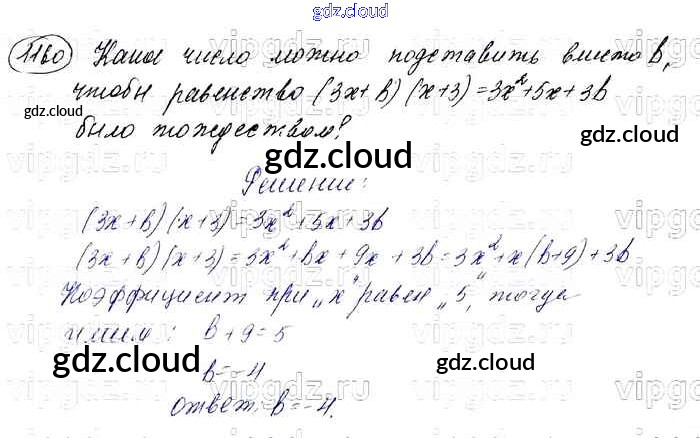 gdz.cloud
1160 Какое число можно подставить вместо b,
чтобы равенство (3x+b)(x+3)=3x²+5x+3b
было тождеством?
gdz.cloud
gdz.cloud
gdz.cloud
Решение:
(3x+b)(x+3)=3x²+5x+3b
(3x+b)(x+3)=3x²+bx+9x+3b=3x²+x(b+9)+3b
Коэффициент при „x" равен „5", тогда
имеем: b+9=5
gdz.cloud
gdz.cloud
b=-4
Ответ: b=-4.
gdz.cloud